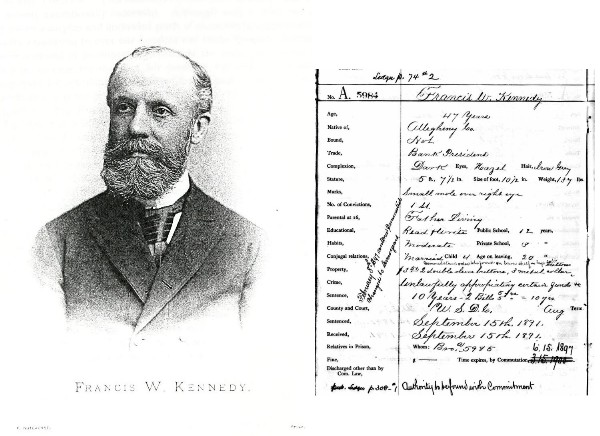 FRANCIS W. KENNEDY.
Ledge p. 74 #2
No. A. 5984 Francis W. Kennedy
Age, 47 Years
Native of, Allegheny Co.
Bound, Not
Trade, Bank President
Complexion, Dark Eyes, Hazel Hair, Iron Grey
Stature, 5 ft. 7½ in. Size of foot, 10½ in. Weight, 137 lbs.
Marks, Small mole over right eye
No. of Convictions, 1 St.
Parental at 16, Father Living
Educational, Read & Write Public School, 12 years,
Habits, Moderate Private School,
Conjugal relations, Married Child 4 Age on leaving, 20
Property,
Crime, Unlawfully appropriating certain goods &c
Sentence, 10 Years - 2 Bills 5 = 10 yrs
County and Court, U. S. D. C. Aug Term
Sentenced, September 15th. 1891.
Received, September 15th. 1891.
Relatives in Prison, Whom: Bro. 5985
Fine, $ Time expires, by Commutation 6. 15. 1897
Discharged other than by
Com. Law,
Authority to be found with Commitment